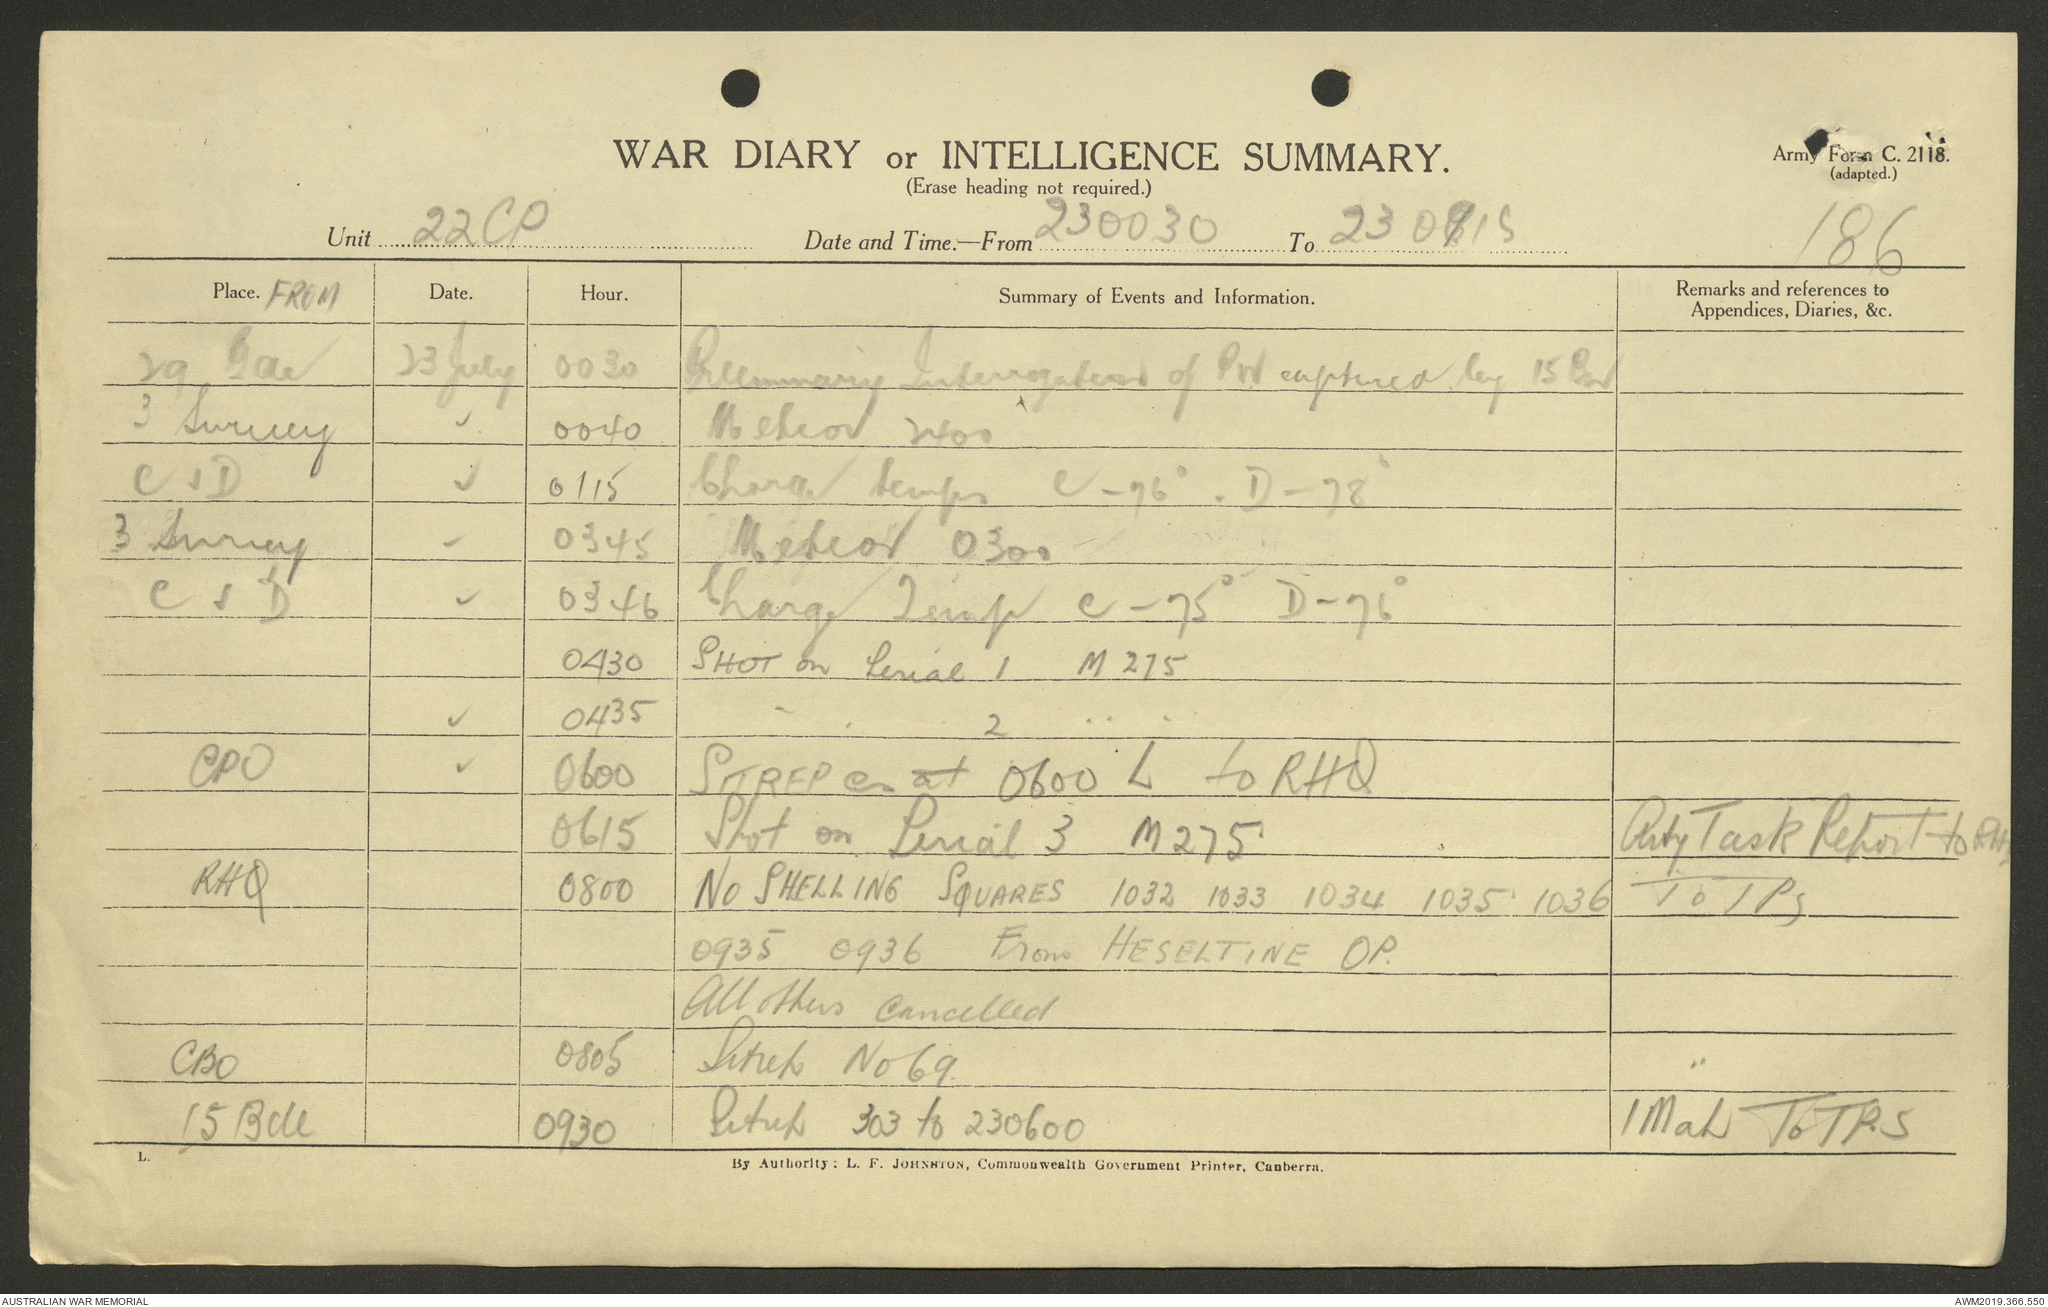 WAR DIARY or INTELLIGENCE SUMMARY.
(Erase heading not required.)
Army Form C. 2118.
(adapted.)
186
Unit 22CP Date and Time.—From 230030 To 230915
Place. FROM Date. Hour. Summary of Events and Information. Remarks and references to Appendices, Diaries, &c.
29 Bde 23 July 0030 Preliminary Interrogation of PW captured by 15 Bde
3 Survey ✓ 0040 Meteor 2400
C & D ✓ 0115 Charge temps C - 76° . D - 78°
3 Survey ✓ 0345 Meteor 0300
C & D ✓ 0346 Charge Temp C - 75° D - 76°
0430 SHOT on Serial 1 M 275
✓ 0435 " " 2 " "
CPO ✓ 0600 SITREP as at 0600 L to RHQ
0615 Shot on Serial 3 M 275 Arty Task Report to RHQ
RHQ 0800 NO SHELLING SQUARES 1032 1033 1034 1035 1036 To TPs
0935 0936 From HESELTINE OP.
All others cancelled
CBO 0805 Sitrep No 69. "
15 Bde 0930 Sitrep 303 to 230600 1 Mah To TP.S
L.
By Authority: L. F. JOHNSTON, Commonwealth Government Printer, Canberra.
AUSTRALIAN WAR MEMORIAL
AWM2019.366.550